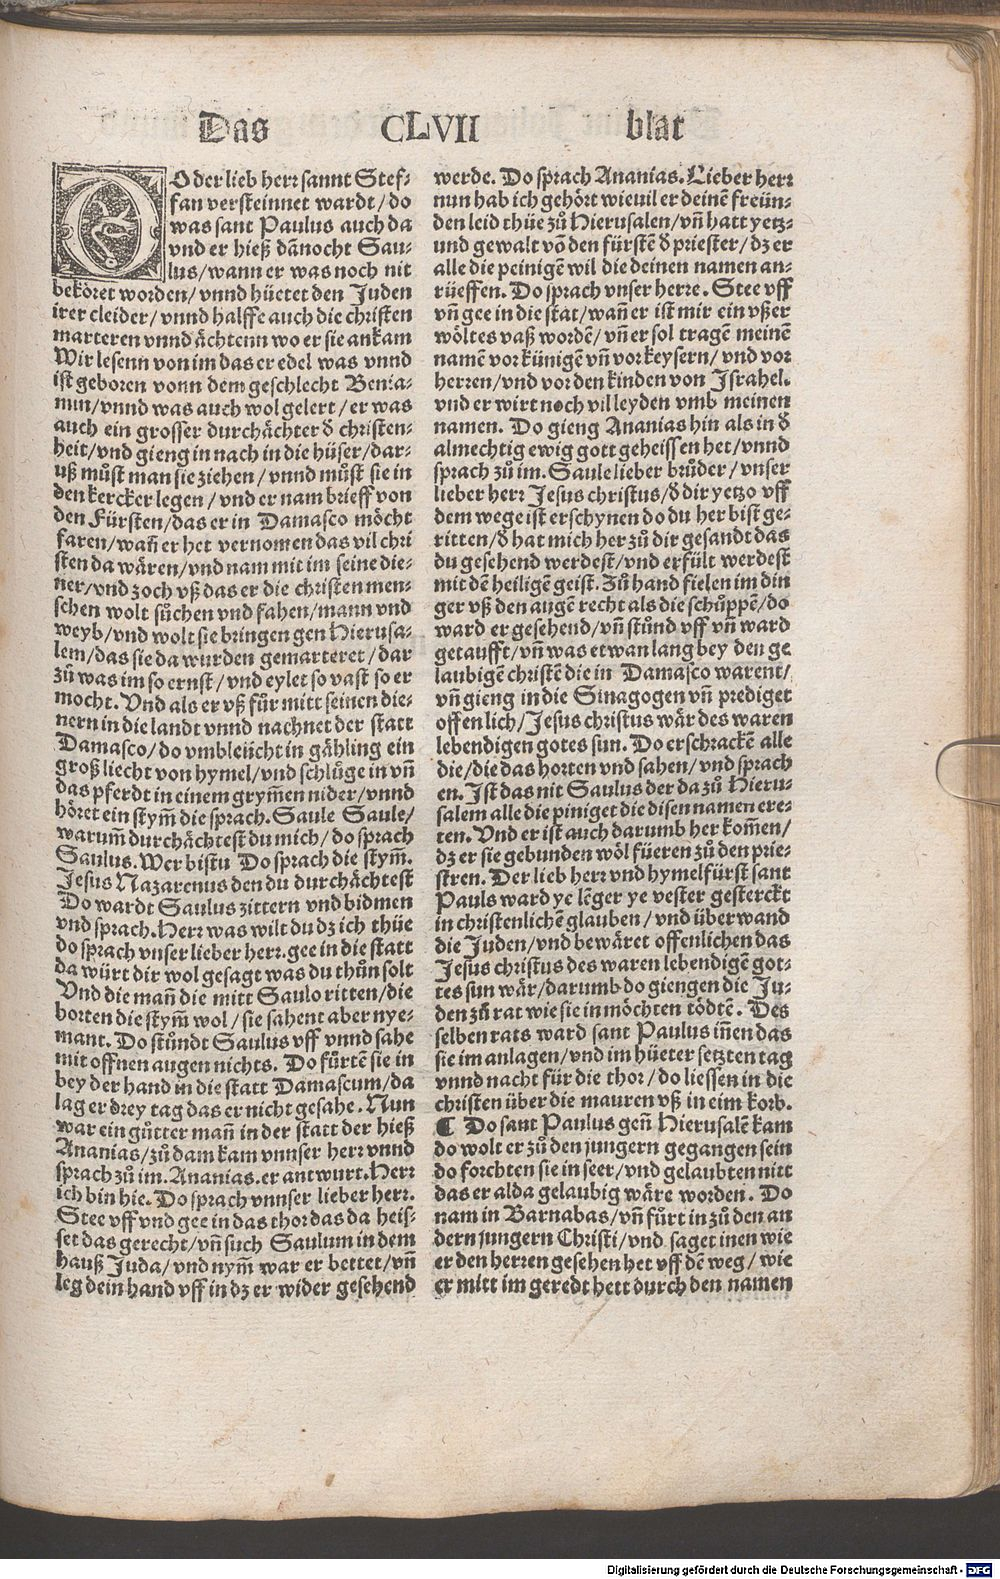 Das CLVII blat
DO der lieb herr sannt Stef⸗
fan versteinnet wardt/do
was sant Paulus auch da
vnd er hieß dañocht Sau⸗
lus/wann er was noch nit
bekõret worden/vnnd hüetet den Juden
irer cleider/vnnd halffe auch die christen
marteren vnnd ächtenn wo er sie ankam
Wir lesenn von im das er edel was vnnd
ist geboren vonn dem geschlecht Benia⸗
min/vnnd was auch wol gelert/er was
auch ein grosser durchächter d̕ christen⸗
heit/vnd gieng in nach in die hüser/dar⸗
uß můst man sie ziehen/vnnd můst sie in
den kercker legen/vnd er nam brieff von
den Fürsten/das er in Damasco möcht
faren/wañ er het vernomen das vil chri
sten da wären/vnd nam mit im seine die⸗
ner/vnd zoch vß das er die christen men⸗
schen wolt sůchen vnd fahen/mann vnd
weyb/vnd wolt sie bringen gen Hierusa⸗
lem/das sie da wurden gemarteret/dar
zů was im so ernst/vnd eylet so vast so er
mocht. Vnd als er vß fůr mitt seinen die⸗
nern in die landt vnnd nachnet der statt
Damasco/do vmbleücht in gähling ein
groß liecht von hymel/vnd schlůge in vñ
das pferdt in einem grym̃en nider/vnnd
höret ein stym̃ die sprach. Saule Saule/
warum̃ durchächtest du mich/do sprach
Saulus. Wer bistu Do sprach die stym̃.
Jesus Nazarenus den du durchächtest
Do wardt Saulus zittern vnd bidmen
vnd sprach. Herr was wilt du dz ich thüe
do sprach vnser lieber herr. gee in die statt
da würt dir wol gesagt was du thůn solt
Vnd die mañ die mitt Saulo ritten/die
horten die stym̃ wol/sie sahent aber nye⸗
mant. Do stůndt Saulus vff vnnd sahe
mit offnen augen nichts. Do fůrtẽ sie in
bey der hand in die statt Damascum/da
lag er drey tag das er nicht gesahe. Nun
war ein gůtter mañ in der statt der hieß
Ananias/zů dam kam vnnser herr vnnd
sprach zů im. Ananias. er antwurt. Herr
ich bin hie. Do sprach vnnser lieber herr.
Stee vff vnd gee in das thor das da heis⸗
set das gerecht/vñ such Saulum in dem
hauß Juda/vnd nym̃ war er bettet/vñ
leg dein hand vff in dz er wider gesehend
werde. Do sprach Ananias. Lieber herr
nun hab ich gehört wieuil er deinẽ freün⸗
den leid thüe zů Hierusalen/vñ hatt yetz⸗
und gewalt võ den fürstẽ d̕ priester/dz er
alle die peinigẽ wil die deinen namen an⸗
rüeffen. Do sprach vnser herre. Stee vff
vñ gee in die stat/wañ er ist mir ein vßer
wöltes vaß wordẽ/vñ er sol tragẽ meinẽ
namẽ vor künigẽ vñ vor keysern/vnd vor
herren/vnd vor den kinden von Israhel.
vnd er wirt noch vil leyden vmb meinen
namen. Do gieng Ananias hin als in d̕
almechtig ewig gott geheissen het/vnnd
sprach zů im. Saule lieber brůder/vnser
lieber herr Jesus christus/d̕ dir yetzo vff
dem wege ist erschynen do du her bist ge⸗
ritten/d̕ hat mich her zů dir gesandt das
du gesehend werdest/vnd erfült werdest
mit dẽ heiligẽ geist. Zů hand fielen im din
ger vß den augẽ recht als die schůppẽ/do
ward er gesehend/vñ stůnd vff vñ ward
getaufft/vñ was etwan lang bey den ge
laubigẽ christẽ die in Damasco warent/
vñ gieng in die Sinagogen vñ prediget
offenlich/Jesus christus wär des waren
lebendigen gotes sun. Do erschrackẽ alle
die/die das horten vnd sahen/vnd sprach
en. Ist das nit Saulus der da zů Hieru⸗
salem alle die piniget die disen namen ere⸗
ten. Vnd er ist auch darumb her kom̃en/
dz er sie gebunden wöl füeren zů den prie⸗
stren. Der lieb herr vnd hymelfürst sant
Pauls ward ye lẽger ye vester gesterckt
in christenlichẽ glauben/vnd überwand
die Juden/vnd bewäret offenlichen das
Jesus christus des waren lebendigẽ got⸗
tes sun wär/darumb do giengen die Ju⸗
den zů rat wie sie in möchten tödtẽ. Des
selben rats ward sant Paulus iñen das
sie im anlagen/vnd im hüeter setzten tag
vnnd nacht für die thor/do liessen in die
christen über die mauren vß in eim korb.
¶ Do sant Paulus geñ Hierusalẽ kam
do wolt er zů den jungern gegangen sein
do forchten sie in seer/vnd gelaubten nitt
das er alda gelaubig wäre worden. Do
nam in Barnabas/vñ fůrt in zů den an
dern jungern Christi/vnd saget inen wie
er den herren gesehen het vff dẽ weg/wie
er mitt im geredt hett durch den namen
Digitalisierung gefördert durch die Deutsche Forschungsgemeinschaft - DFG